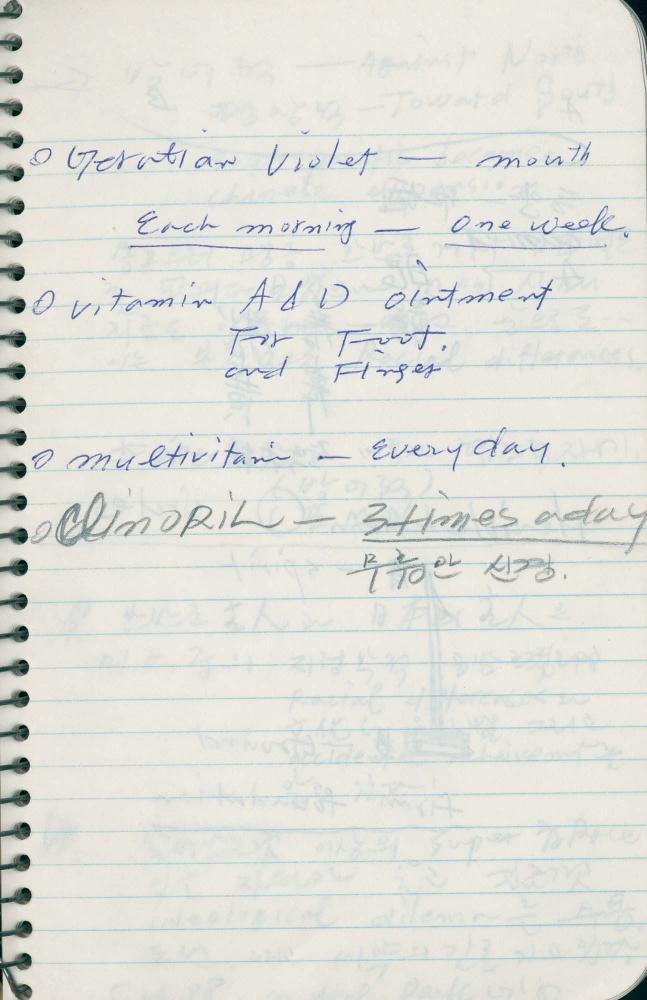 o Gentian Violet — mouth
Each morning — One week.
o vitamin A & D ointment
For Foot.
and Finger
o multivitain — Everyday.
o CLINORIL — 3 times a day
무릎안 신경.